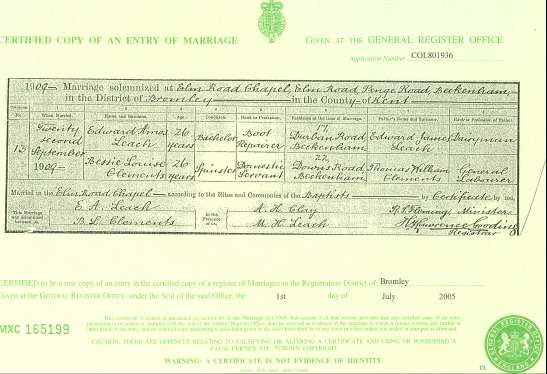 CERTIFIED COPY OF AN ENTRY OF MARRIAGE
GIVEN AT THE GENERAL REGISTER OFFICE
Application Number COL801936
1909 Marriage solemnized at Elm Road Chapel, Elm Road, Penge Road, Beckenham
in the District of Bromley in the County of Kent
No. When Married. Name and Surname. Age. Condition. Rank or Profession. Residence at the time of Marriage. Father's Name and Surname. Rank or Profession of Father.
13
Twenty second September 1909
Edward Amos Leach 26 years Bachelor Boot Repairer Durban Road Beckenham Edward James Leach Dairyman
Bessie Louise Clements 26 years Spinster Domestic Servant 22, Downs Road Beckenham Thomas William Clements General Labourer
Married in the Elm Road Chapel according to the Rites and Ceremonies of the Baptists by Certificate by me,
This Marriage was solemnized between us,
E. A. Leach
B. L. Clements
in the Presence of us,
A. H. Clay
M. H. Leach
Fleming, Minister
Lawrence Gooding
Registrar
CERTIFIED to be a true copy of an entry in the certified copy of a register of Marriages in the Registration District of Bromley
Given at the GENERAL REGISTER OFFICE, under the Seal of the said Office, the 1st day of July 2005
MXC 165199
CAUTION: THERE ARE OFFENCES RELATING TO FALSIFYING OR ALTERING A CERTIFICATE AND USING OR POSSESSING A
FALSE CERTIFICATE. ©CROWN COPYRIGHT
WARNING: A CERTIFICATE IS NOT EVIDENCE OF IDENTITY.
GENERAL REGISTER OFFICE
ENGLAND